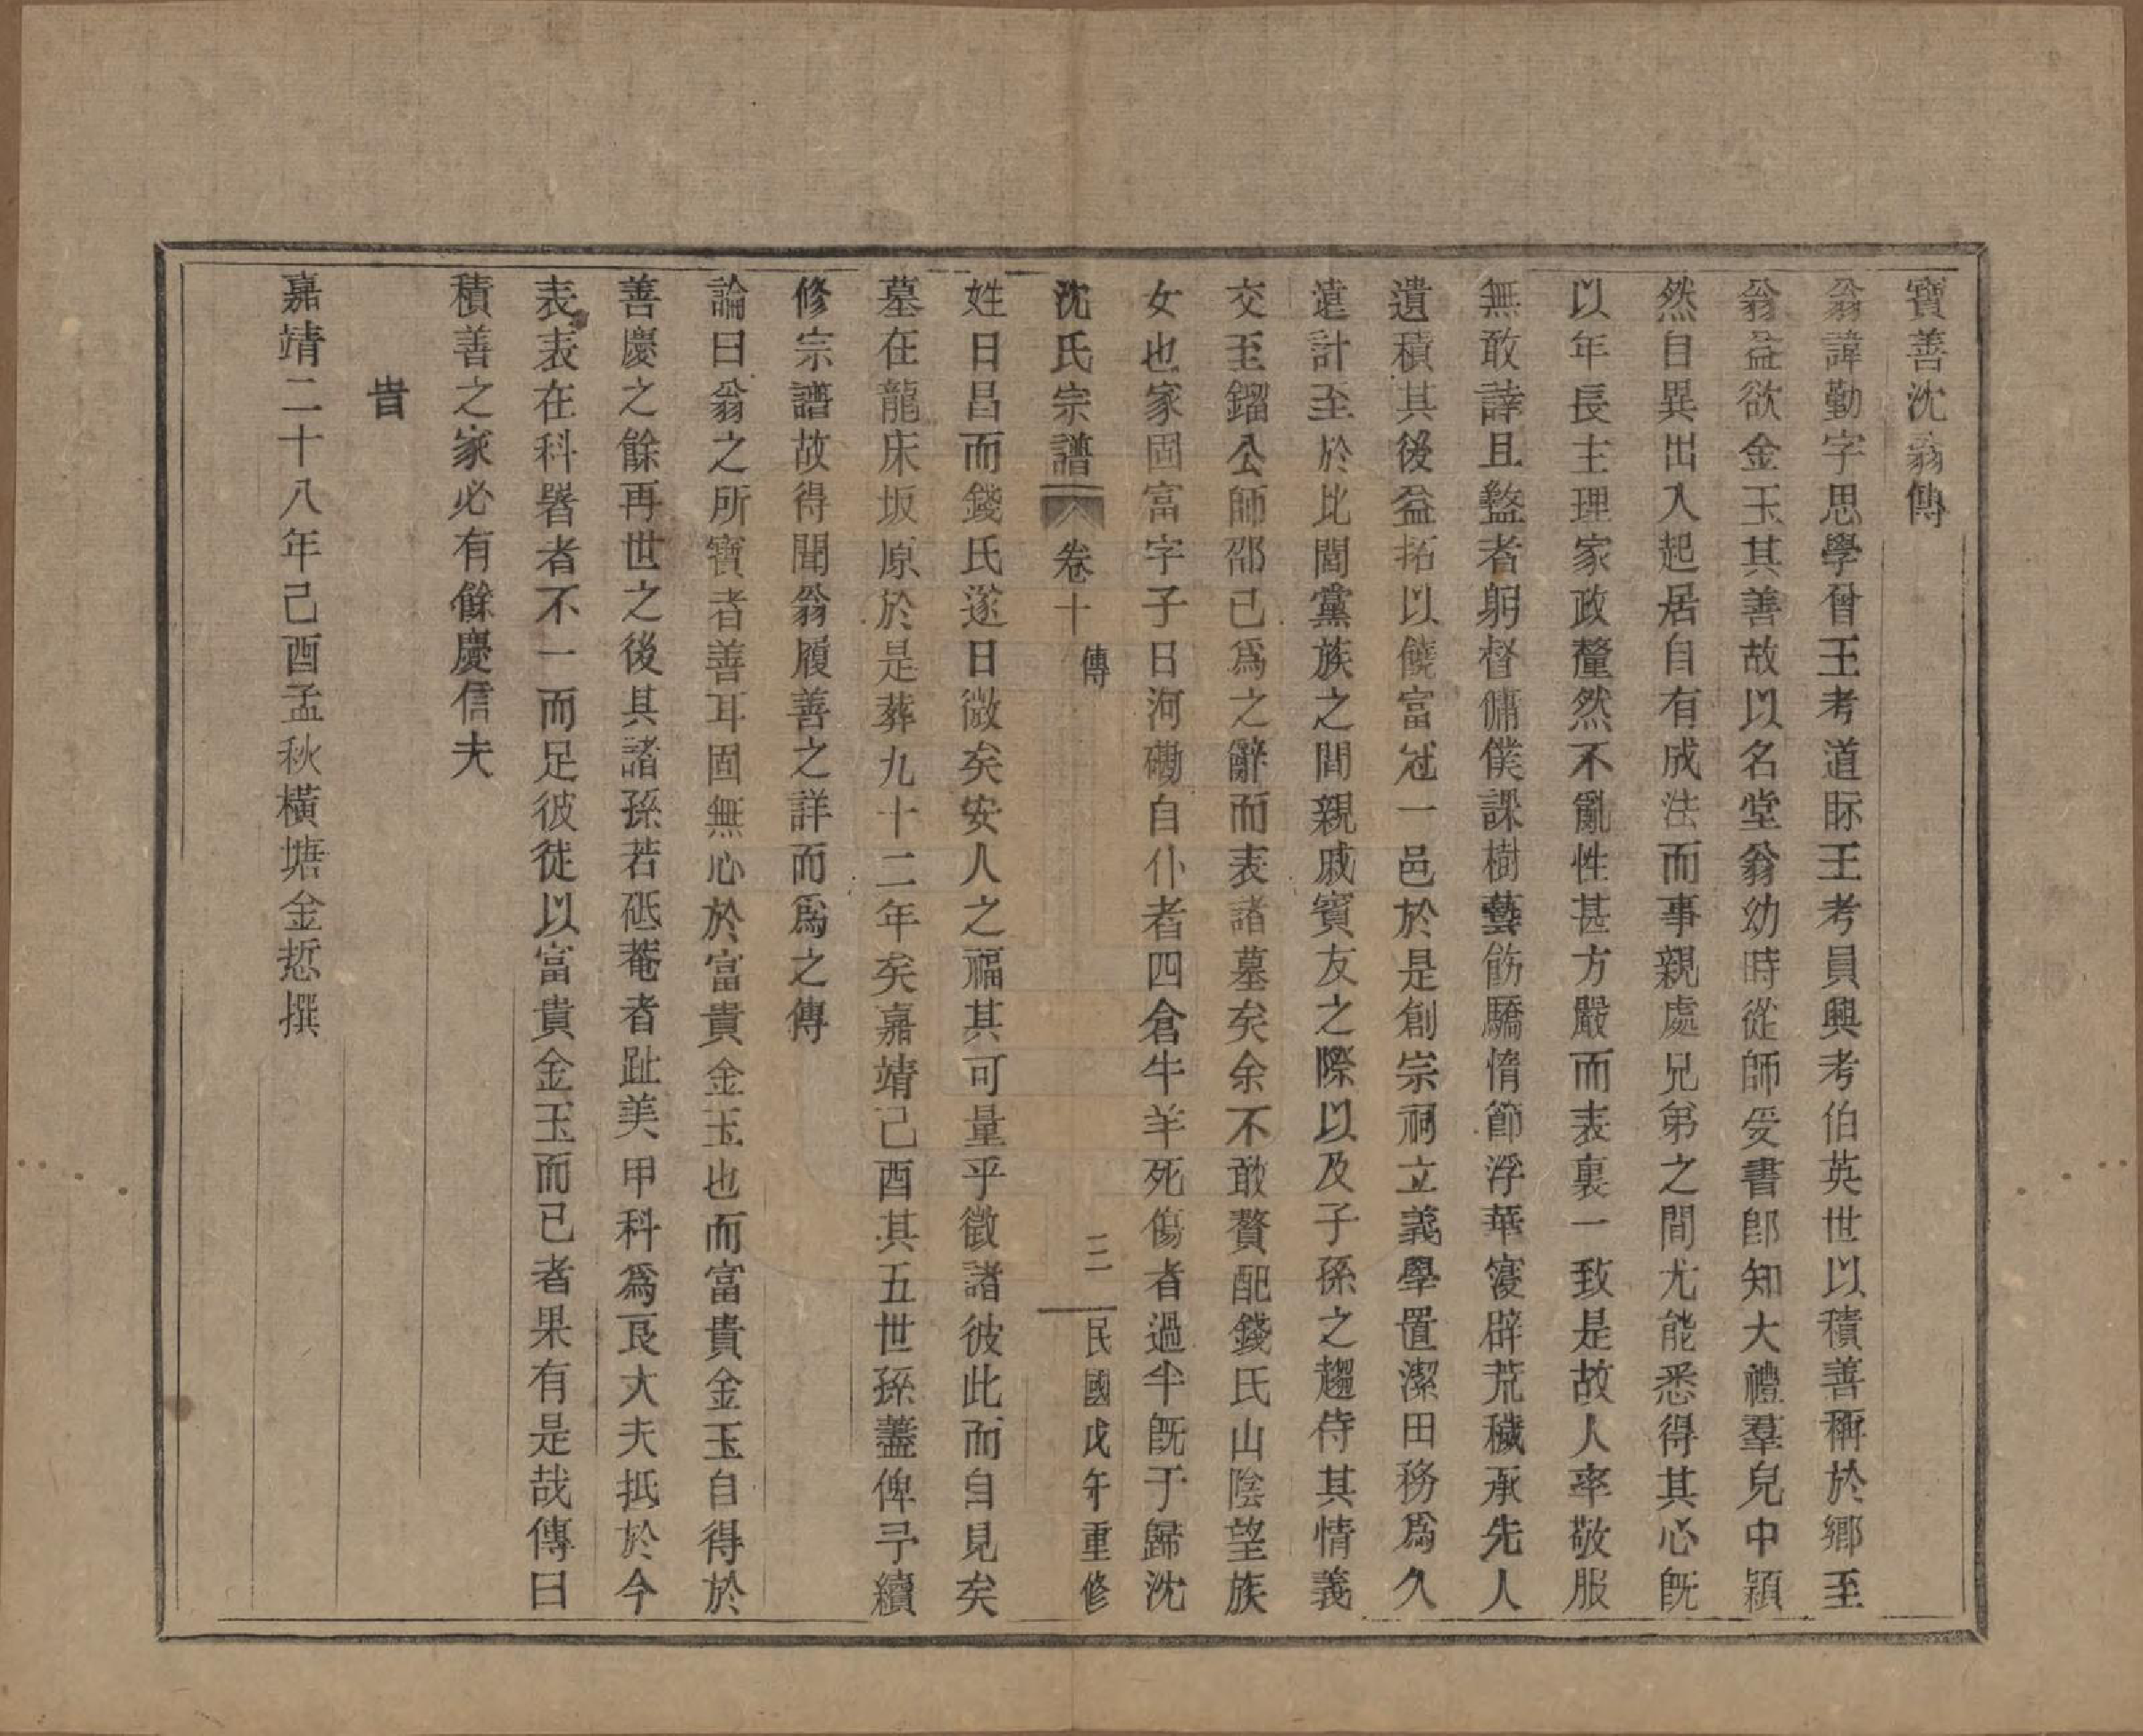 寶善沈翁傳
翁諱勤字思學曾王考道眎王考員興考伯英世以積善稱於鄉至
翁益欲金玉其善故以名堂翁幼時從師受書卽知大禮羣兒中穎
然自異出入起居自有成法而事親處兄弟之間尤能悉得其心旣
以年長主理家政釐然不亂性甚方嚴而表裏一致是故人率敬服
無敢誶且盭者躬督傭僕課樹藝飭驕惰節浮華寖辟荒穢承先人
遺積其後益拓以饒富冠一邑於是創宗祠立義學置潔田務爲久
遠計至於比閭黨族之間親戚賓友之際以及子孫之趨侍其情義
交至鎦公師邵已爲之辭而表諸墓矣余不敢贅配錢氏山陰望族
女也家固富字子日河磡自仆者四倉牛羊死傷者過半旣于歸沈
沈氏宗譜 卷十 傳 三 民國戊午重修
姓日昌而錢氏遂日微矣安人之福其可量乎徵諸彼此而自見矣
墓在龍床坂原於是葬九十二年矣嘉靖己酉其五世孫藎俾予續
修宗譜故得聞翁履善之詳而爲之傳
論曰翁之所寶者善耳固無心於富貴金玉也而富貴金玉自得於
善慶之餘再世之後其諸孫若砥菴者趾美甲科爲良大夫抵於今
表表在科署者不一而足彼徒以富貴金玉而已者果有是哉傳曰
積善之家必有餘慶信夫
旹
嘉靖二十八年己酉孟秋橫塘金悊撰